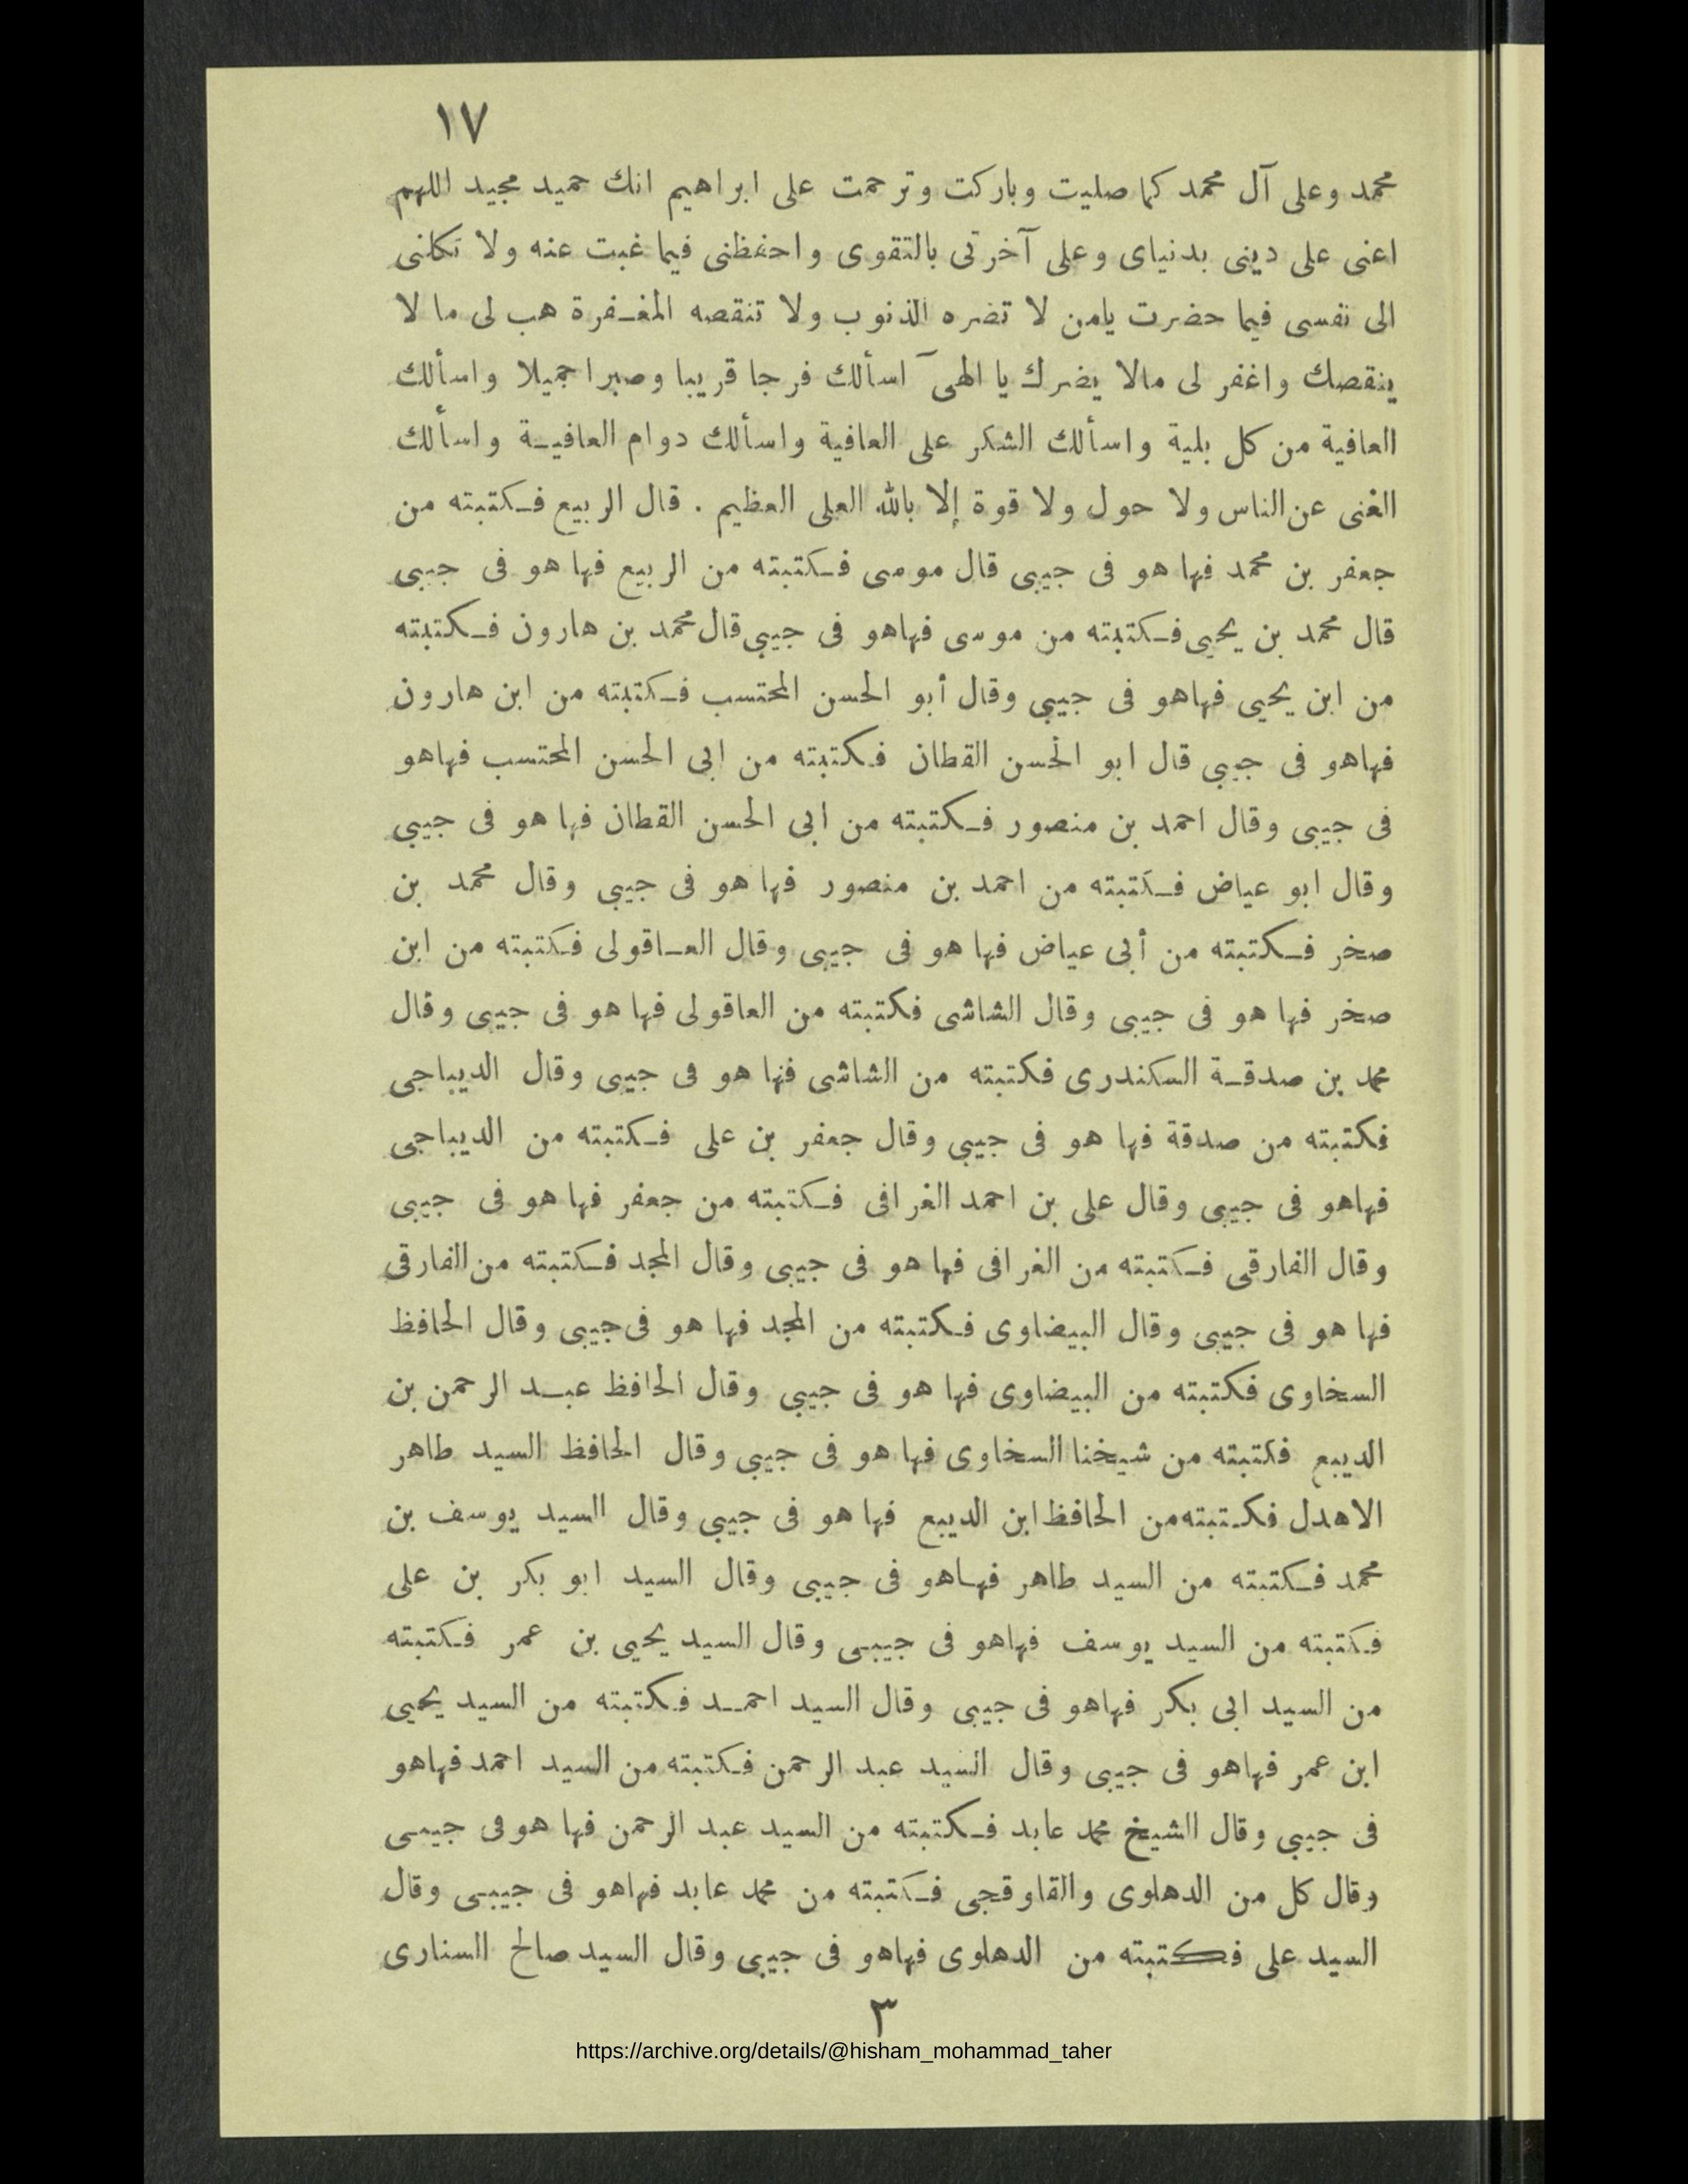 ١٧
محمد وعلى آل محمد كما صليت وباركت وترحمت على ابراهيم انك حميد مجيد اللهم
اعنى على دينى بدنياى وعلى آخرتى بالتقوى واحفظنى فيما غبت عنه ولا تكلنى
الى نفسى فيما حضرت يامن لا تضره الذنوب ولا تنقصه المغـفرة هب لى ما لا
ينقصك واغفر لى مالا يضرك يا الهى آسألك فرجا قريبا وصبرا جميلا واسألك
العافية من كل بلية واسألك الشكر على العافية واسألك دوام العافيـة واسألك
الغنى عن الناس ولا حول ولا قوة إلا بالله العلى العظيم . قال الربيع فـكتبته من
جعفر بن محمد فها هو فى جيبى قال موسى فـكتبته من الربيع فها هو فى جيبى
قال محمد بن يحيى فـكتبته من موسى فهاهو فى جيبى قال محمد بن هارون فـكتبته
من ابن يحيى فهاهو فى جيبى وقال أبو الحسن المحتسب فـكتبته من ابن هارون
فهاهو فى جيبى قال ابو الحسن القطان فـكتبته من ابى الحسن المحتسب فهاهو
فى جيبى وقال احمد بن منصور فـكتبته من ابى الحسن القطان فها هو فى جيبى
وقال ابو عياض فـكتبته من احمد بن منصور فها هو فى جيبى وقال محمد بن
صخر فـكتبته من أبى عياض فها هو فى جيبى وقال العـاقولى فـكتبته من ابن
صخر فها هو فى جيبى وقال الشاشى فكتبته من العاقولى فها هو فى جيبى وقال
محمد بن صدقـة السكندرى فكتبته من الشاشى فها هو فى جيبى وقال الديباجى
فكتبته من صدقة فها هو فى جيبى وقال جعفر بن على فـكتبته من الديباجى
فهاهو فى جيبى وقال على بن احمد الغرافى فـكتبته من جعفر فها هو فى جيبى
وقال الفارقى فـكتبته من الغرافى فها هو فى جيبى وقال المجد فـكتبته من الفارقى
فها هو فى جيبى وقال البيضاوى فـكتبته من المجد فها هو فى جيبى وقال الحافظ
السخاوى فكتبته من البيضاوى فها هو فى جيبى وقال الحافظ عبـد الرحمن بن
الديبع فكتبته من شيخنا السخاوى فها هو فى جيبى وقال الحافظ السيد طاهر
الاهدل فكـتبته من الحافظ ابن الديبع فها هو فى جيبى وقال السيد يوسف بن
محمد فـكتبته من السيد طاهر فهـاهو فى جيبى وقال السيد ابو بكر بن على
فـكتبته من السيد يوسف فهاهو فى جيبـى وقال السيد يحيى بن عمر فـكتبته
من السيد ابى بكر فهاهو فى جيبى وقال السيد احمـد فـكتبته من السيد يحيى
ابن عمر فهاهو فى جيبى وقال السيد عبد الرحمن فـكتبته من السيد احمد فهاهو
فى جيبى وقال الشيخ محمد عابد فـكتبته من السيد عبد الرحمن فها هو فى جيبـى
وقال كل من الدهلوى والقاوقجى فـكتبته من محمد عابد فهاهو فى جيبـى وقال
السيد على فـكتبته من الدهلوى فهاهو فى جيبى وقال السيد صالح السنارى
٣
https://archive.org/details/@hisham_mohammad_taher